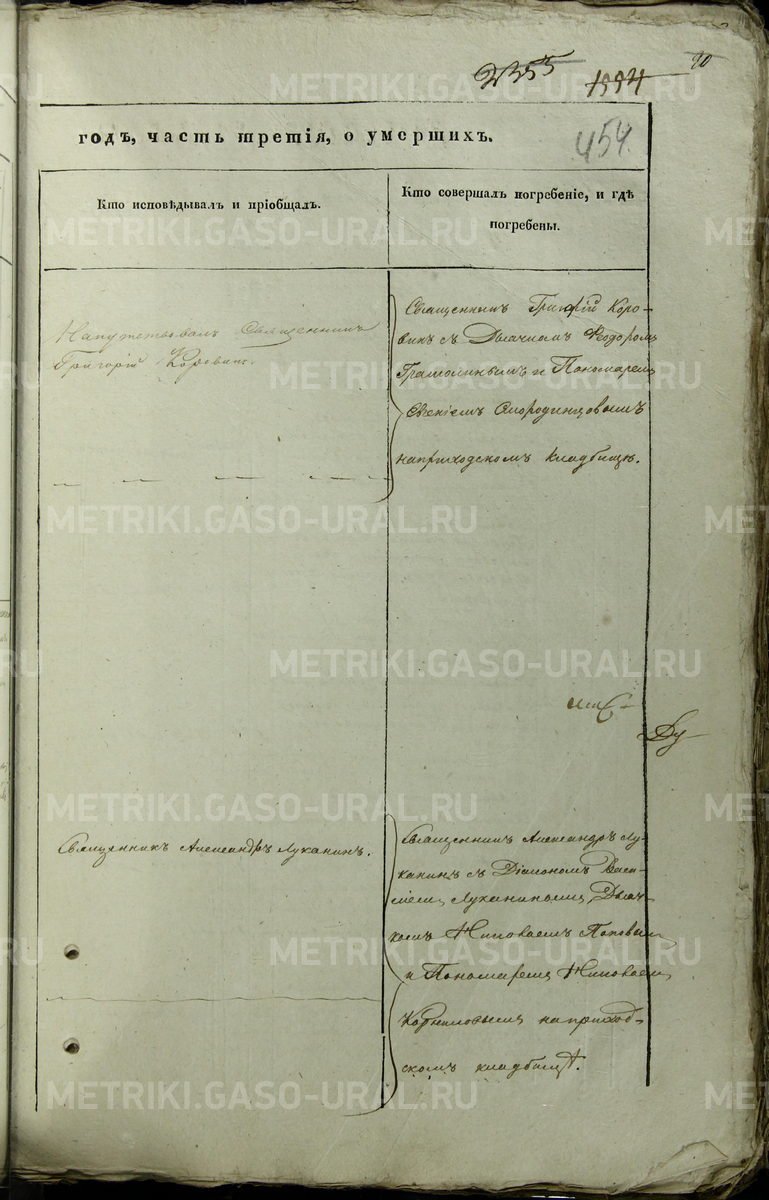 2355 1994 90
454
годъ, часть третія, о умершихъ.
Кто исповѣдывалъ и пріобщалъ.
Кто совершалъ погребеніе, и гдѣ
погребены.
Напутствовалъ Священникъ
Григорій Коровинъ.
Священникъ Григорій Коро-
винъ съ Дьячкомъ Ѳеодоромъ
и Пономаремъ
Евгеніемъ Смородинцовымъ
на приходскомъ кладбищѣ.
Священникъ Александръ Луканинъ.
Священникъ Александръ Лу-
канинъ съ Діакономъ Васи-
ліемъ Луканинымъ, Дьяч-
комъ Николаемъ Поповымъ
и Пономаремъ Николаемъ
Корниловымъ на приход-
скомъ кладбищѣ.
METRIKI.GASO-URAL.RU